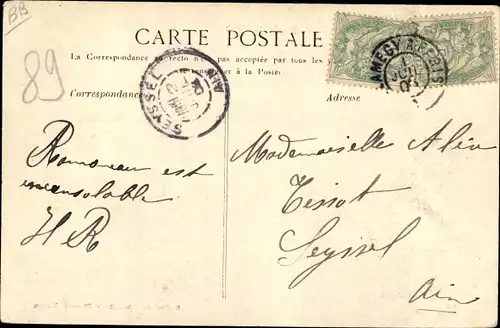 BB
CARTE POSTALE
La Correspondance au recto n'est pas acceptée par tous les
à la Poste)
89
Correspondance
Adresse
SEYSSEL AIN
Ramoneau est
inconsolable
H R
Mademoiselle Aline
Tissot
Seyssel
Ain